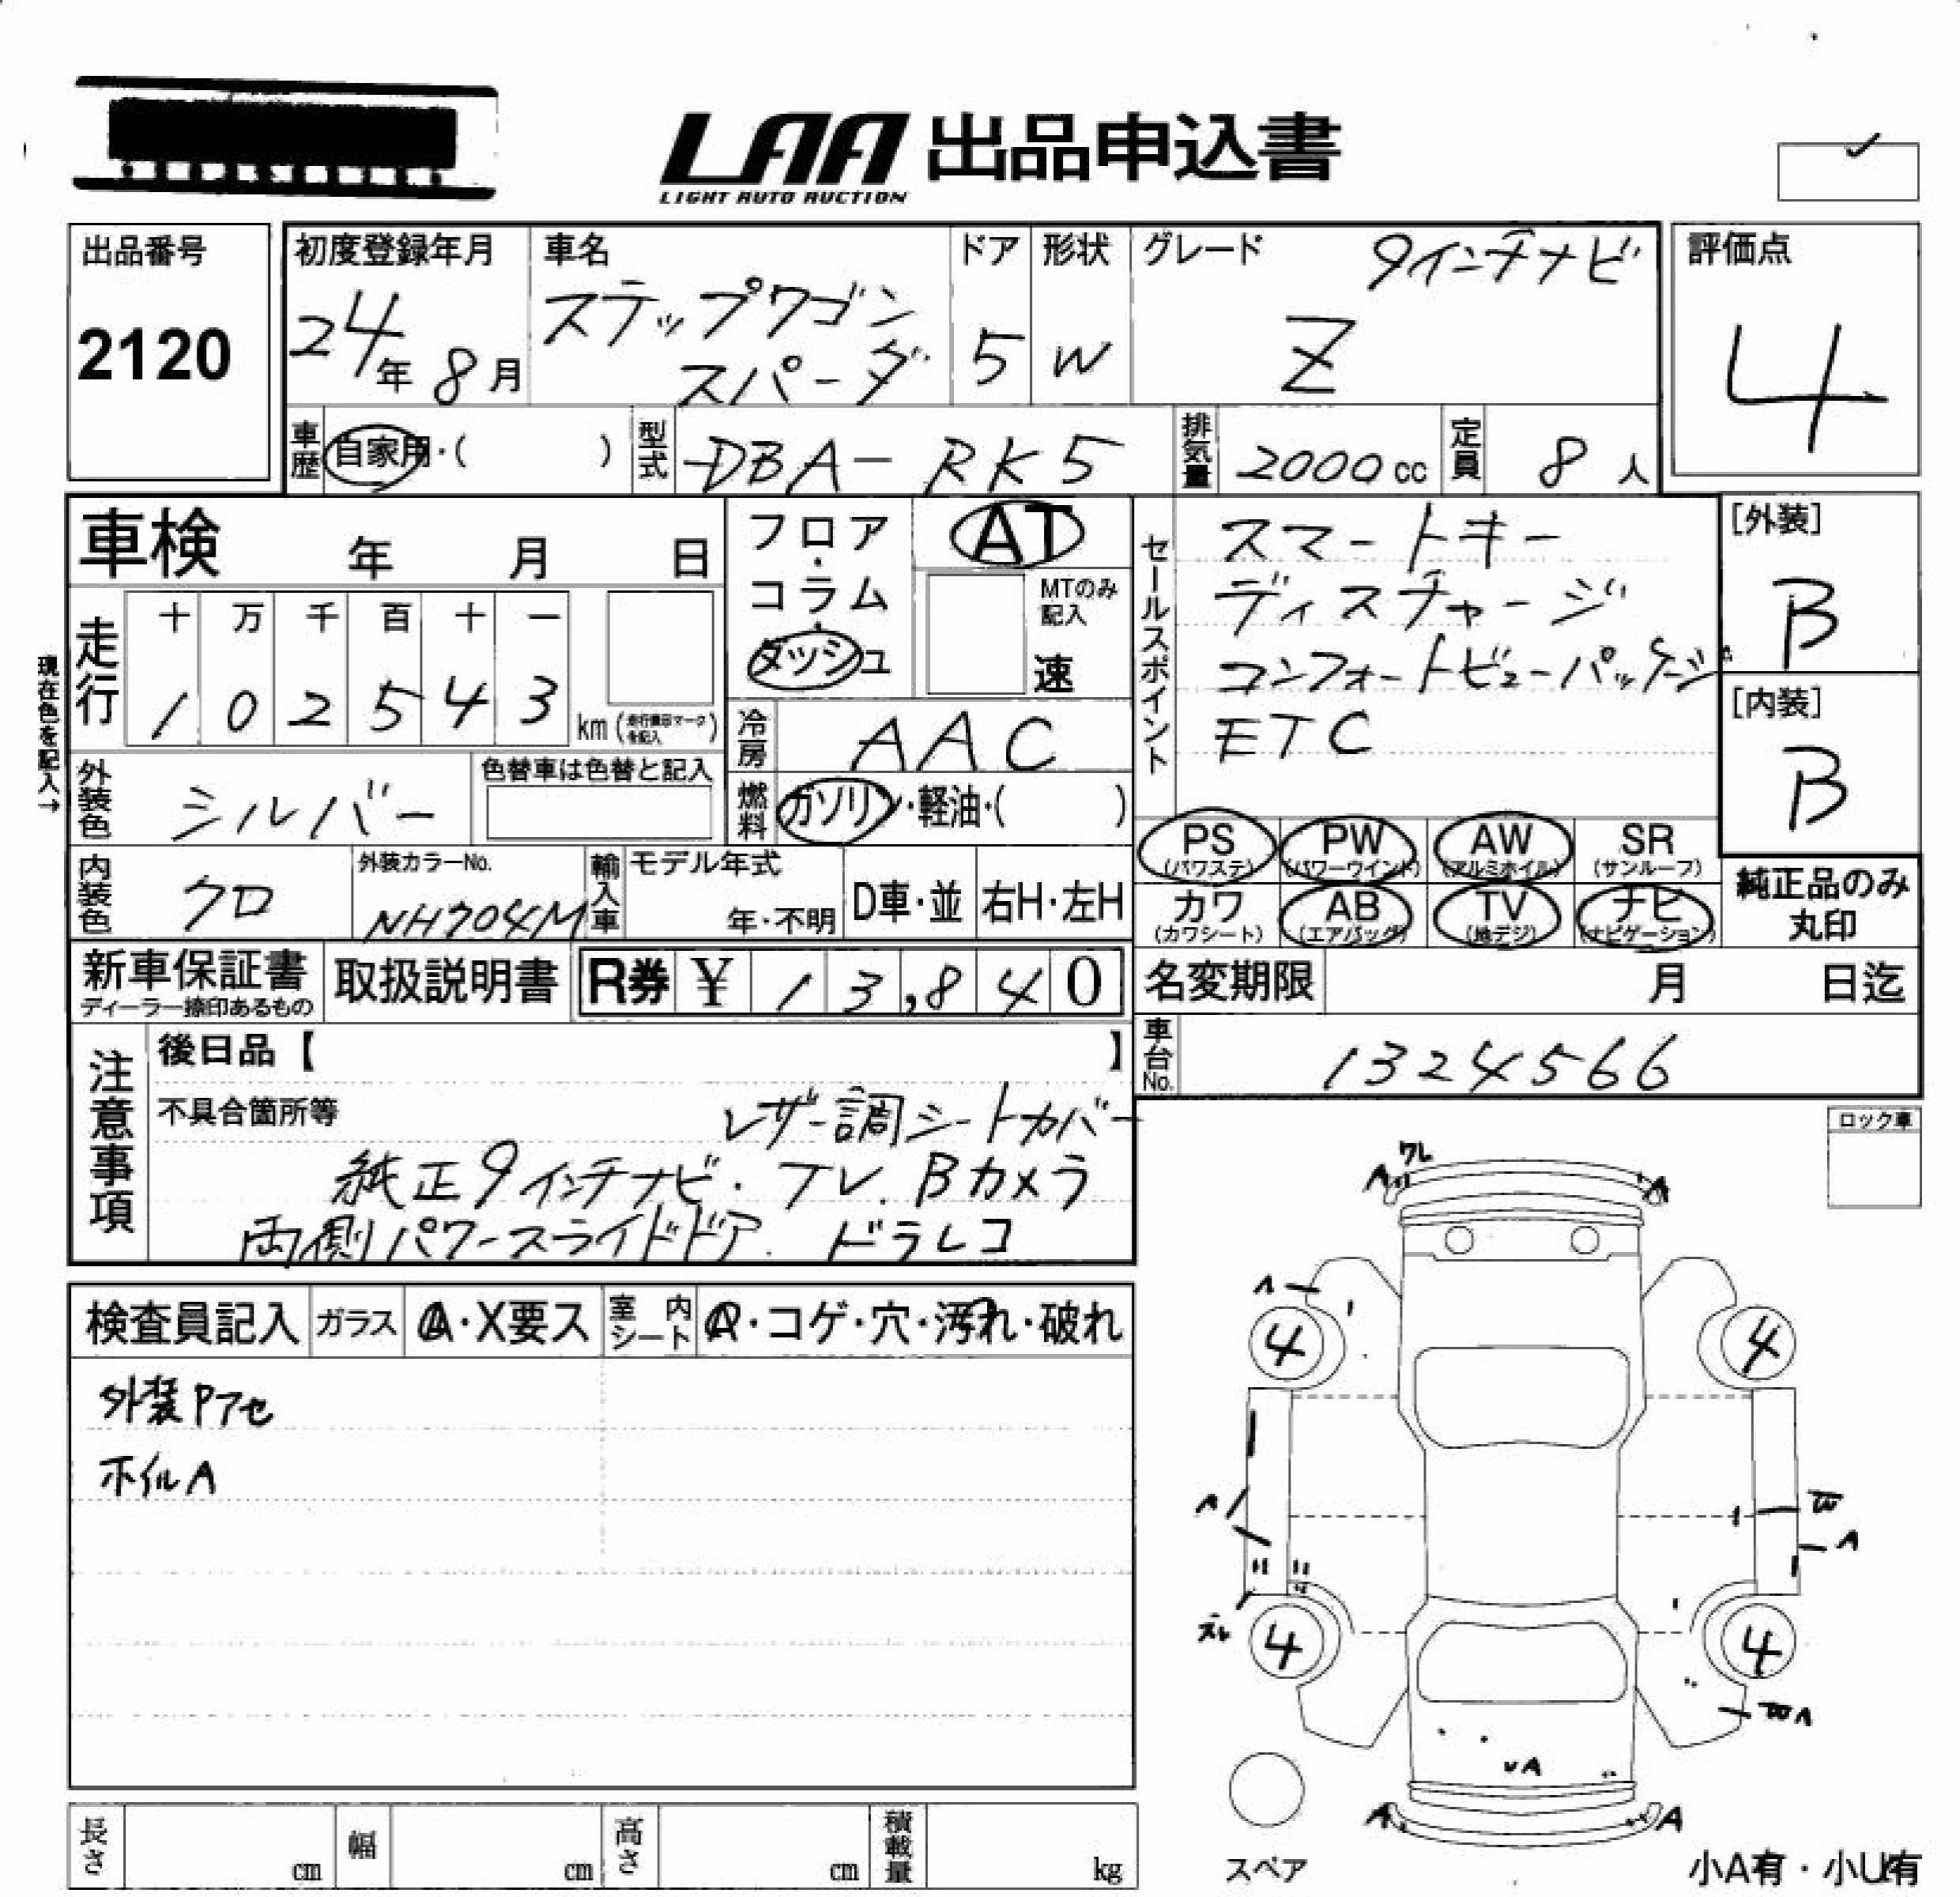 LAA 出品申込書
LIGHT AUTO AUCTION
出品番号
2120
初度登録年月
24年 8月
車名
ステップワゴン
スパーダ
ドア
5
形状
W
グレード 9インチナビ
Z
評価点
4
車歴 自家用・( )
型式 DBA-RK5
排気量 2000cc
定員 8人
車検 年 月 日
フロア・コラム・ダッシュ
AT
MTのみ記入
速
セールスポイント
スマートキー
ディスチャージ
コンフォートビューパッケージ
ETC
[外装]
B
[内装]
B
現在色を記入→
走行
十 万 千 百 十 一
1 0 2 5 4 3 km
冷房 AAC
燃料 ガソリン・軽油・( )
外装色 シルバー
色替車は色替と記入
内装色 クロ
外装カラーNo.
NH704M
輸入車
モデル年式
年・不明
D車・並
右H・左H
PS (パワステ)
PW (パワーウインド)
AW (アルミホイル)
SR (サンルーフ)
カワ (カワシート)
AB (エアバッグ)
TV (地デジ)
ナビ (ナビゲーション)
純正品のみ
丸印
新車保証書
ディーラー捺印あるもの
取扱説明書
R券 ¥ 13,840
名変期限 月 日迄
車台No. 1324566
注意事項
後日品【 】
不具合箇所等 レザー調シートカバー
純正9インチナビ. TV. Bカメラ
両側パワースライドドア. ドラレコ
ロック車
検査員記入
ガラス A・X要ス
室内シート A・コゲ・穴・汚れ・破れ
外装Pアセ
ホイルA
ワレ
A A
A
4 4
A W
A
4 4
WA
A
A A
スペア
小A有・小U有
長さ cm
幅 cm
高さ cm
積載量 kg